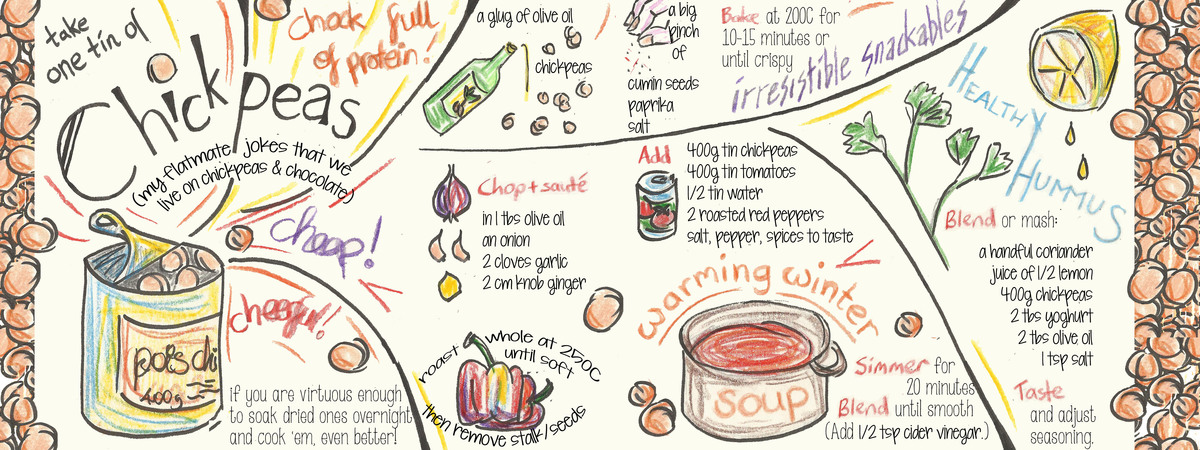 take
one tin of
Chickpeas
(my flatmate jokes that we
live on chickpeas & chocolate)
chock full
of protein!
cheap!
cheerful!
pois chi
400g
If you are virtuous enough
to soak dried ones overnight
and cook 'em, even better!
a glug of olive oil
chickpeas
a big
pinch
of
cumin seeds
paprika
salt
Bake at 200C for
10-15 minutes or
until crispy
irresistible snackables
Chop + sauté
in 1 tbs olive oil
an onion
2 cloves garlic
2 cm knob ginger
roast whole at 250C
until soft
then remove stalk/seeds
Add
400g tin chickpeas
400g tin tomatoes
1/2 tin water
2 roasted red peppers
salt, pepper, spices to taste
warming winter
soup
Simmer for
20 minutes
Blend until smooth
(Add 1/2 tsp cider vinegar.)
Healthy
Hummus
Blend or mash:
a handful coriander
juice of 1/2 lemon
400g chickpeas
2 tbs yoghurt
2 tbs olive oil
1 tsp salt
Taste
and adjust
seasoning.